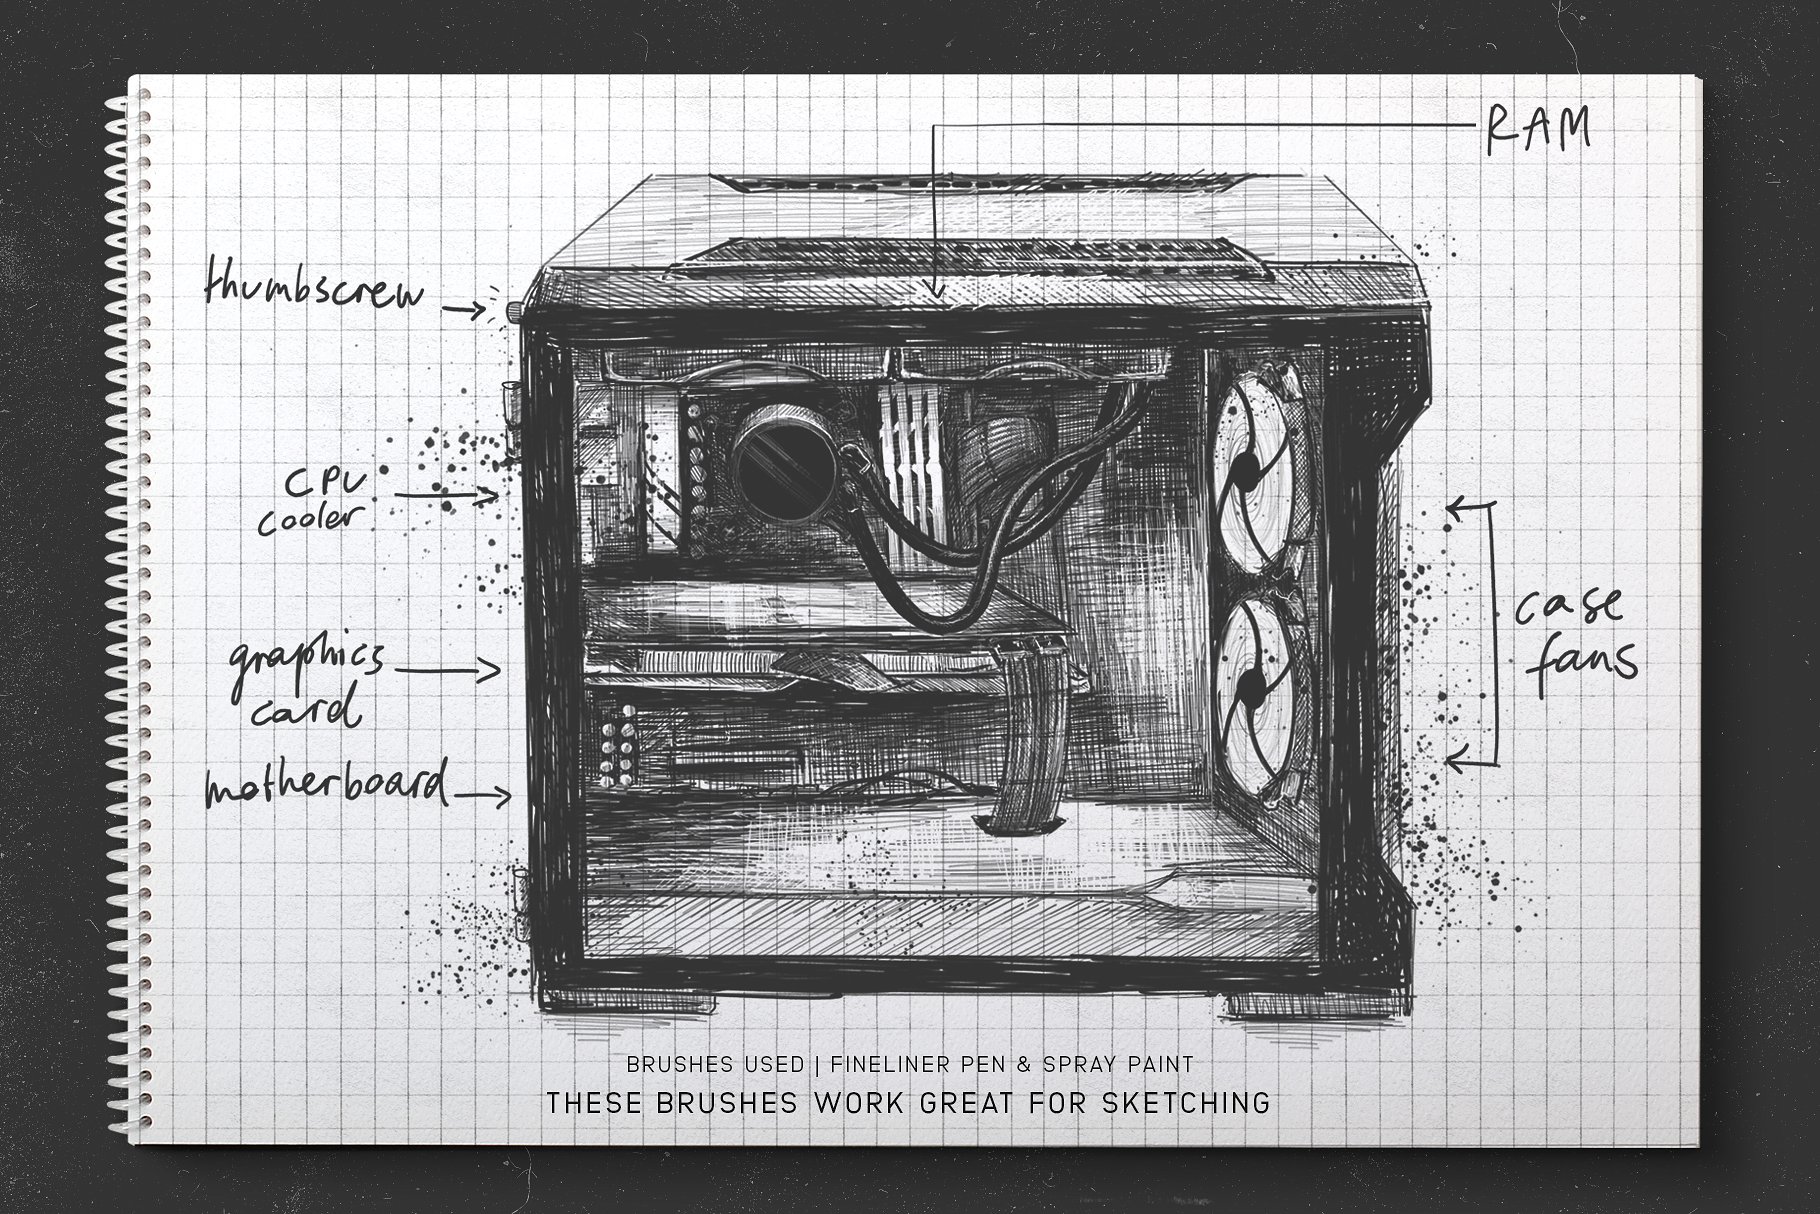 RAM
thumbscrew
CPU
cooler
case
fans
graphics
card
motherboard
BRUSHES USED | FINELINER PEN & SPRAY PAINT
THESE BRUSHES WORK GREAT FOR SKETCHING